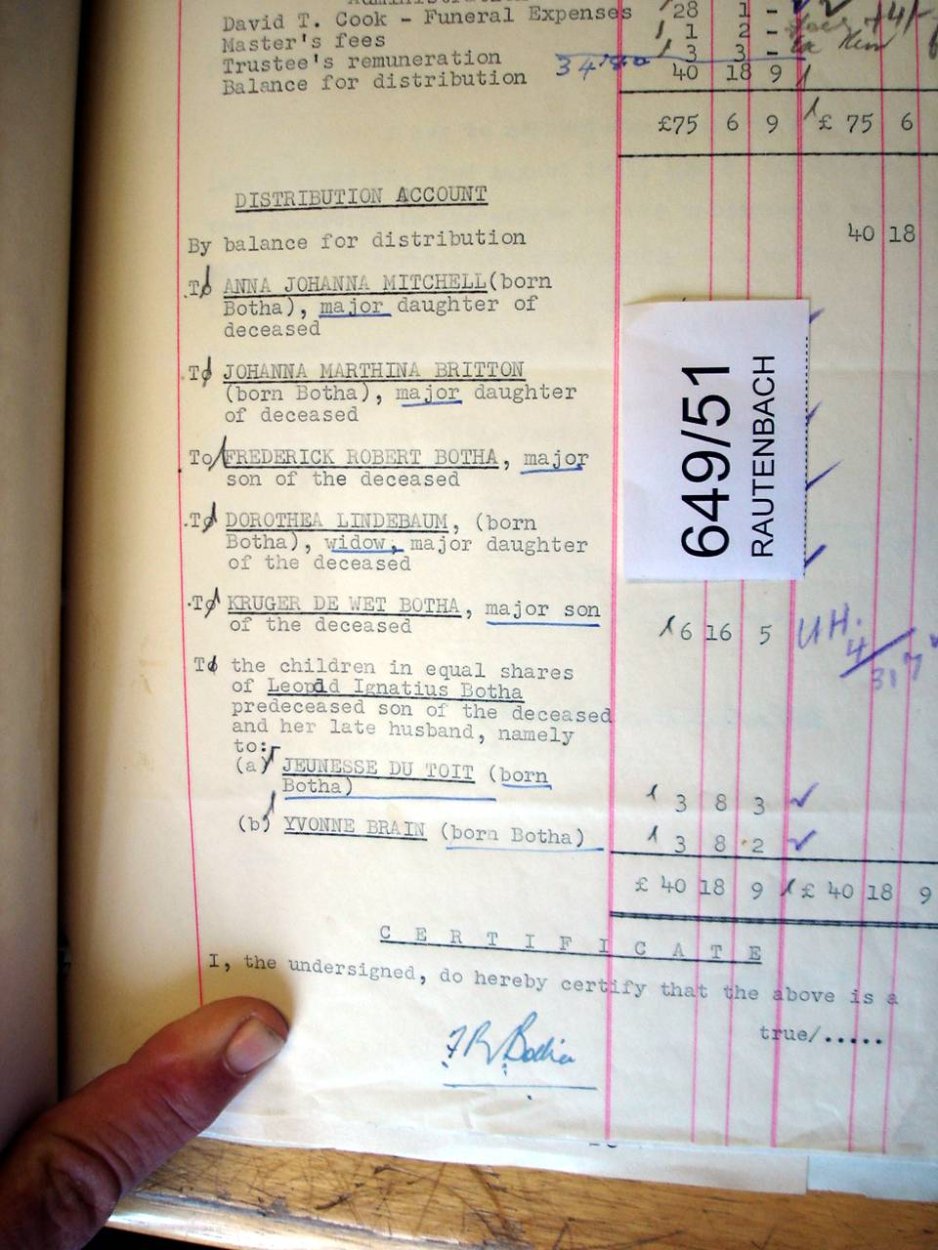 David T. Cook - Funeral Expenses 28 1 -
Master's fees 1 2 -
Trustee's remuneration 3 3 -
Balance for distribution 40 18 9
£75 6 9 £ 75 6
DISTRIBUTION ACCOUNT
By balance for distribution 40 18
To ANNA JOHANNA MITCHELL(born
Botha), major daughter of
deceased
To JOHANNA MARTHINA BRITTON
(born Botha), major daughter
of deceased
To FREDERICK ROBERT BOTHA, major
son of the deceased
To DOROTHEA LINDEBAUM, (born
Botha), widow, major daughter
of the deceased
649/51
RAUTENBACH
To KRUGER DE WET BOTHA, major son
of the deceased 6 16 5 U H.
To the children in equal shares
of Leopold Ignatius Botha
predeceased son of the deceased
and her late husband, namely
to:-
(a) JEUNESSE DU TOIT (born
Botha) 3 8 3
(b) YVONNE BRAIN (born Botha) 3 8 2
£ 40 18 9 £ 40 18 9
C E R T I F I C A T E
I, the undersigned, do hereby certify that the above is a
true/.....
F R Botha